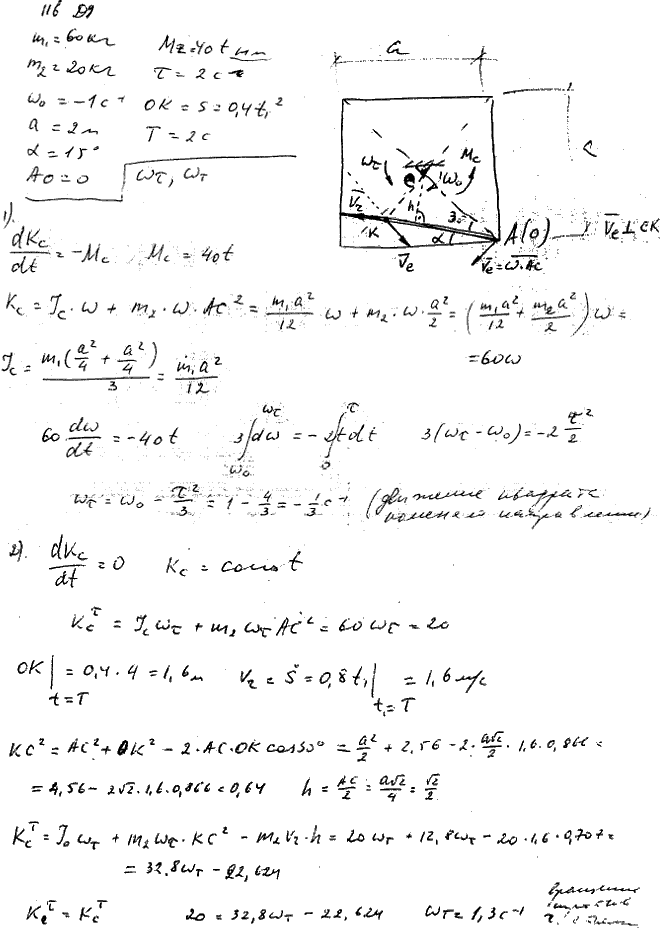 116 D9
m₁ = 60 кг   Mz = 40 t нм
m₂ = 20 кг   τ = 2 c
ω₀ = −1 c⁻¹   OK = s = 0,4 t₁²
a = 2 м   T = 2 c
α = 15°
AO = 0   ωτ, ωT
a
c
ωτ   Mc
ω₀
V̄r   h   30
K   α   A(0)   V̄e ⊥ CK
V̄e   V̄e = ω·AC
1).
dKc/dt = −Mc,   Mc = 40t
Kc = Jc·ω + m₂·ω·AC² = m₁a²/12 ω + m₂·ω·a²/2 = (m₁a²/12 + m₂a²/2)ω =
= 60ω
Jc = m₁(a²/4 + a²/4)/3 = m₁a²/12
60 dω/dt = −40t   3∫dω = −2∫t dt   3(ωτ − ω₀) = −2 τ²/2
ωτ = ω₀ − τ²/3 = 1 − 4/3 = −1/3 c⁻¹   (движение квадрата
поменяет направление)
2).   dKc/dt = 0   Kc = const
Kc^τ = Jc ωτ + m₂ ωτ AC² = 60 ωτ = 20
OK|t=T = 0,4·4 = 1,6 м   Vr = Ṡ = 0,8 t₁|t₁=T = 1,6 м/с
KC² = AC² + OK² − 2·AC·OK cos30° = a²/2 + 2,56 − 2·a√2/2·1,6·0,866 =
= 4,56 − 2√2·1,6·0,866 = 0,64   h = AC/2 = a√2/4 = √2/2
Kc^T = J₀ ωT + m₂ ωτ·KC² − m₂Vr·h = 20 ωT + 12,8ωT − 20·1,6·0,707 =
= 32,8ωT − 22,624
Kc^τ = Kc^T   20 = 32,8ωT − 22,624   ωT = 1,3 c⁻¹
вращение